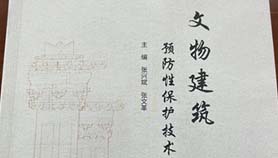 文物建筑
预防性保护技术
主 编 张兴斌 张文革